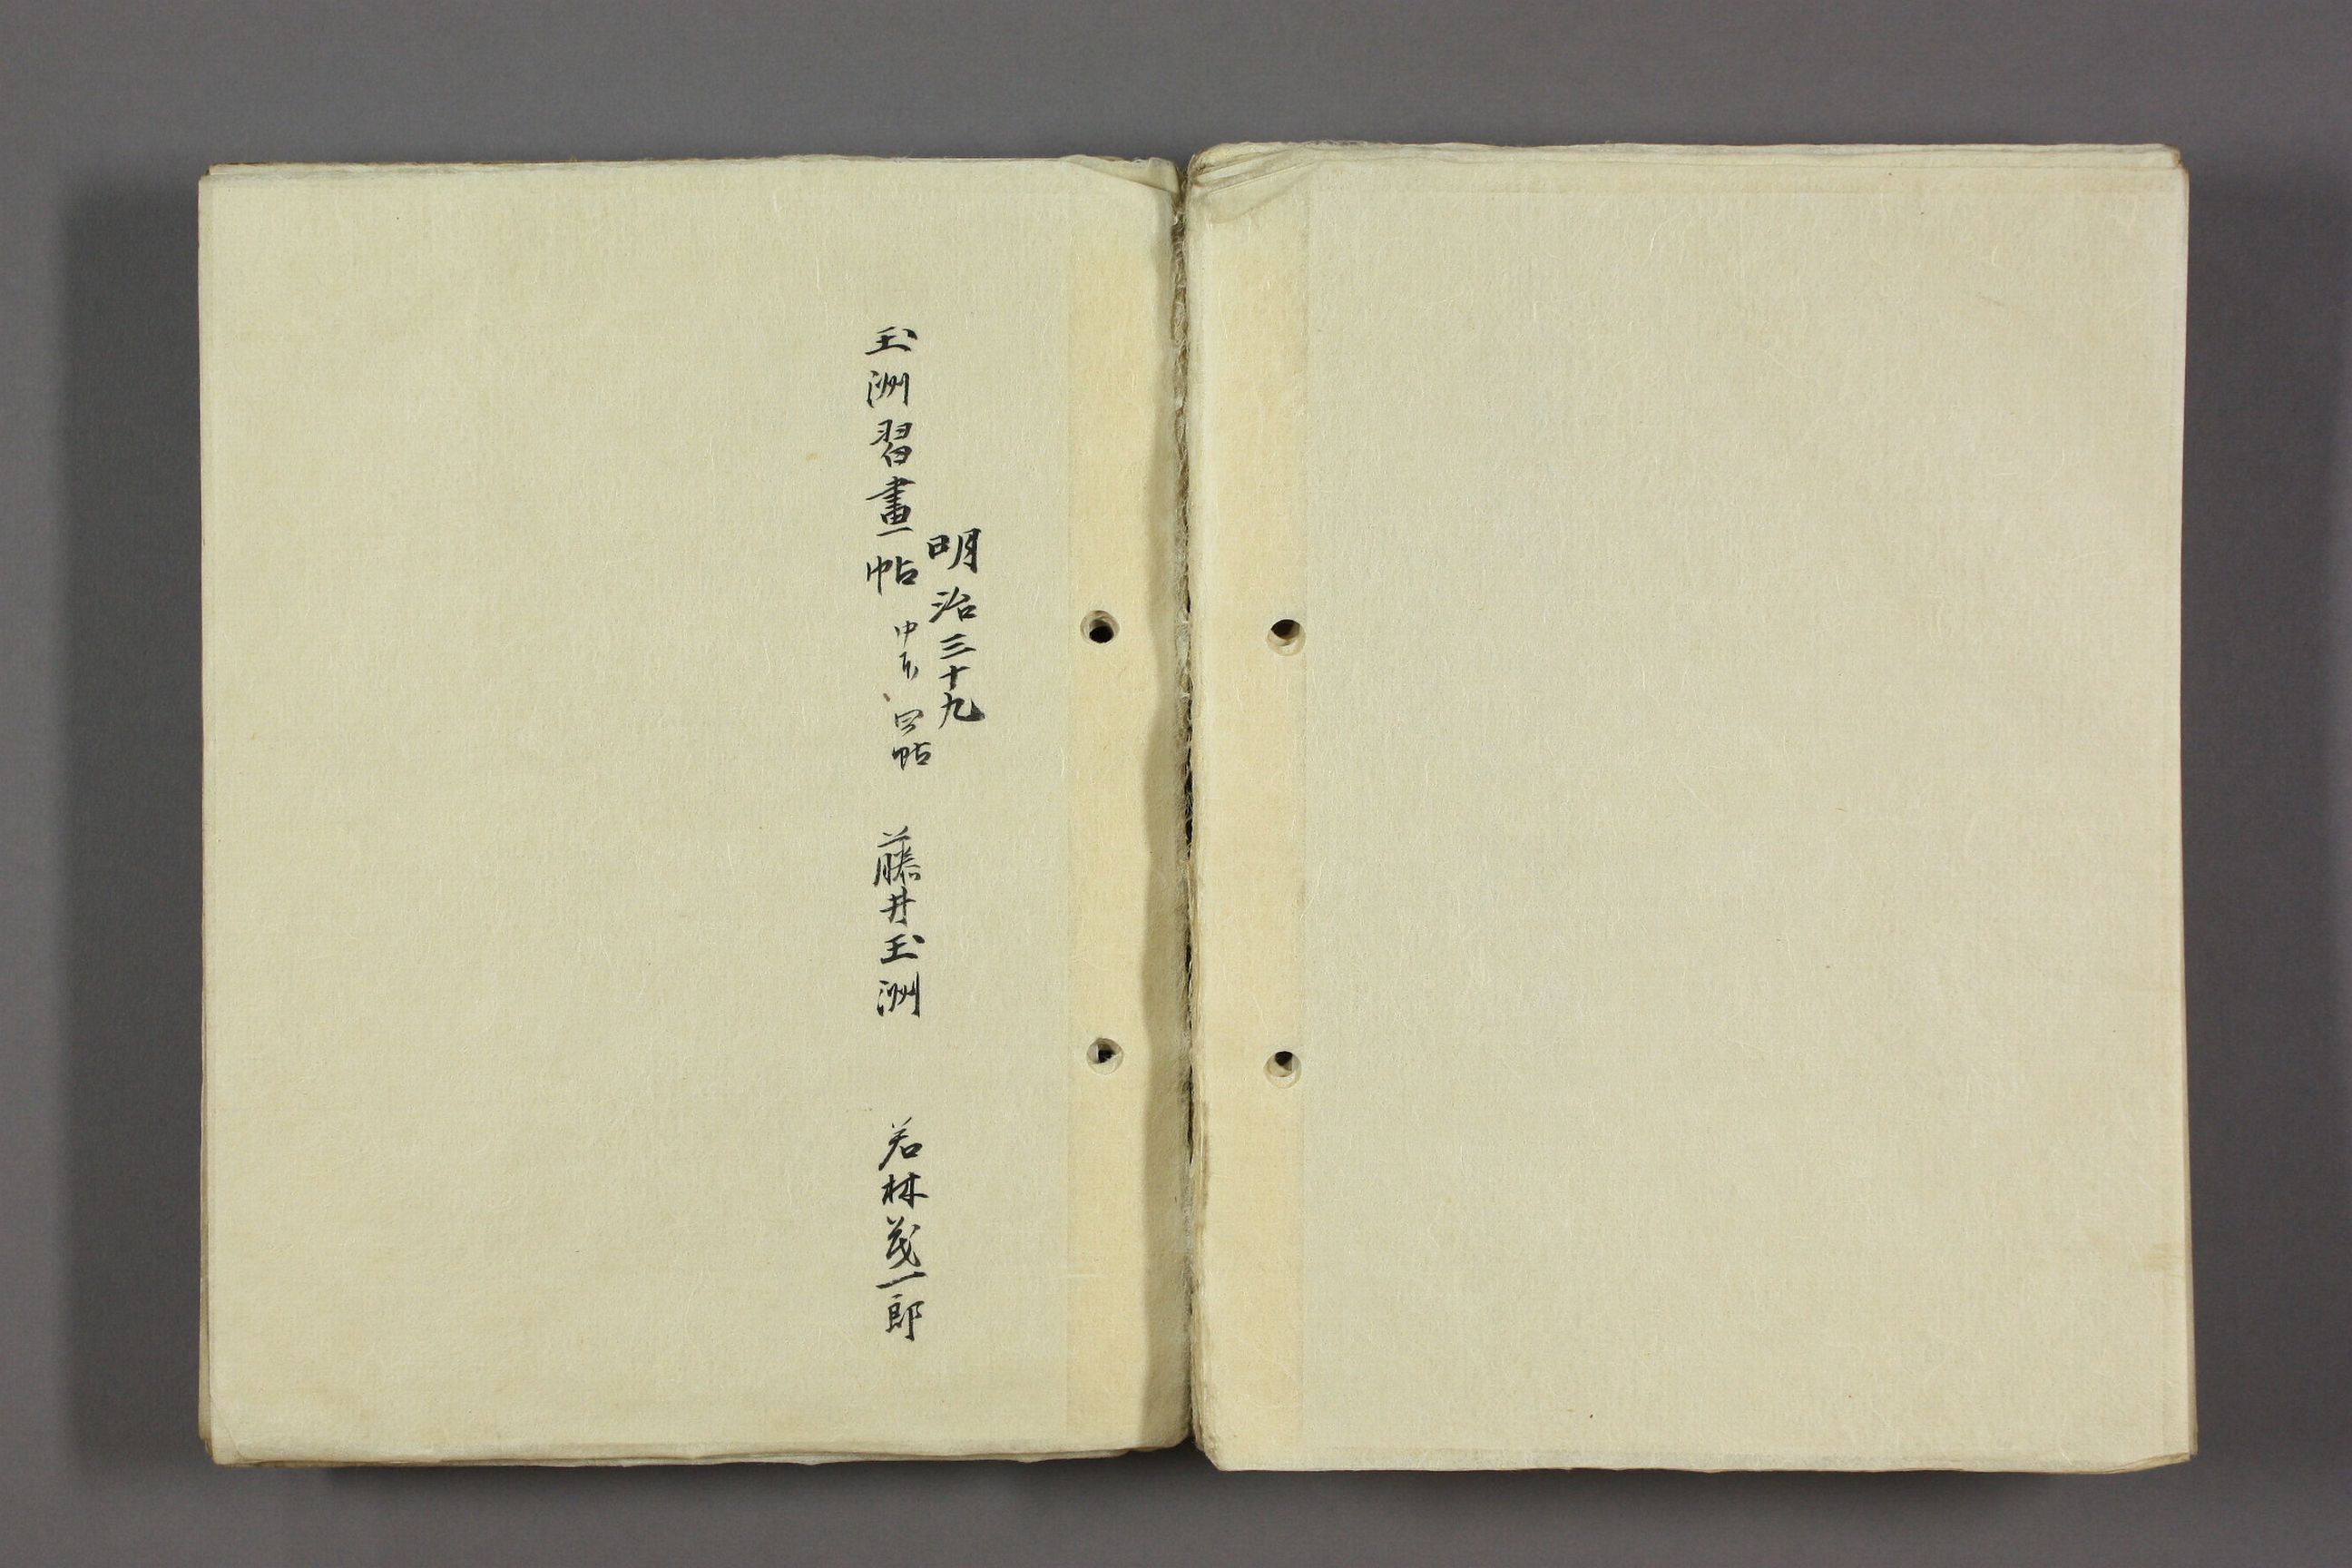 明治三十九
玉洲習畫帖 四帖 藤井玉洲 若林茂一郎